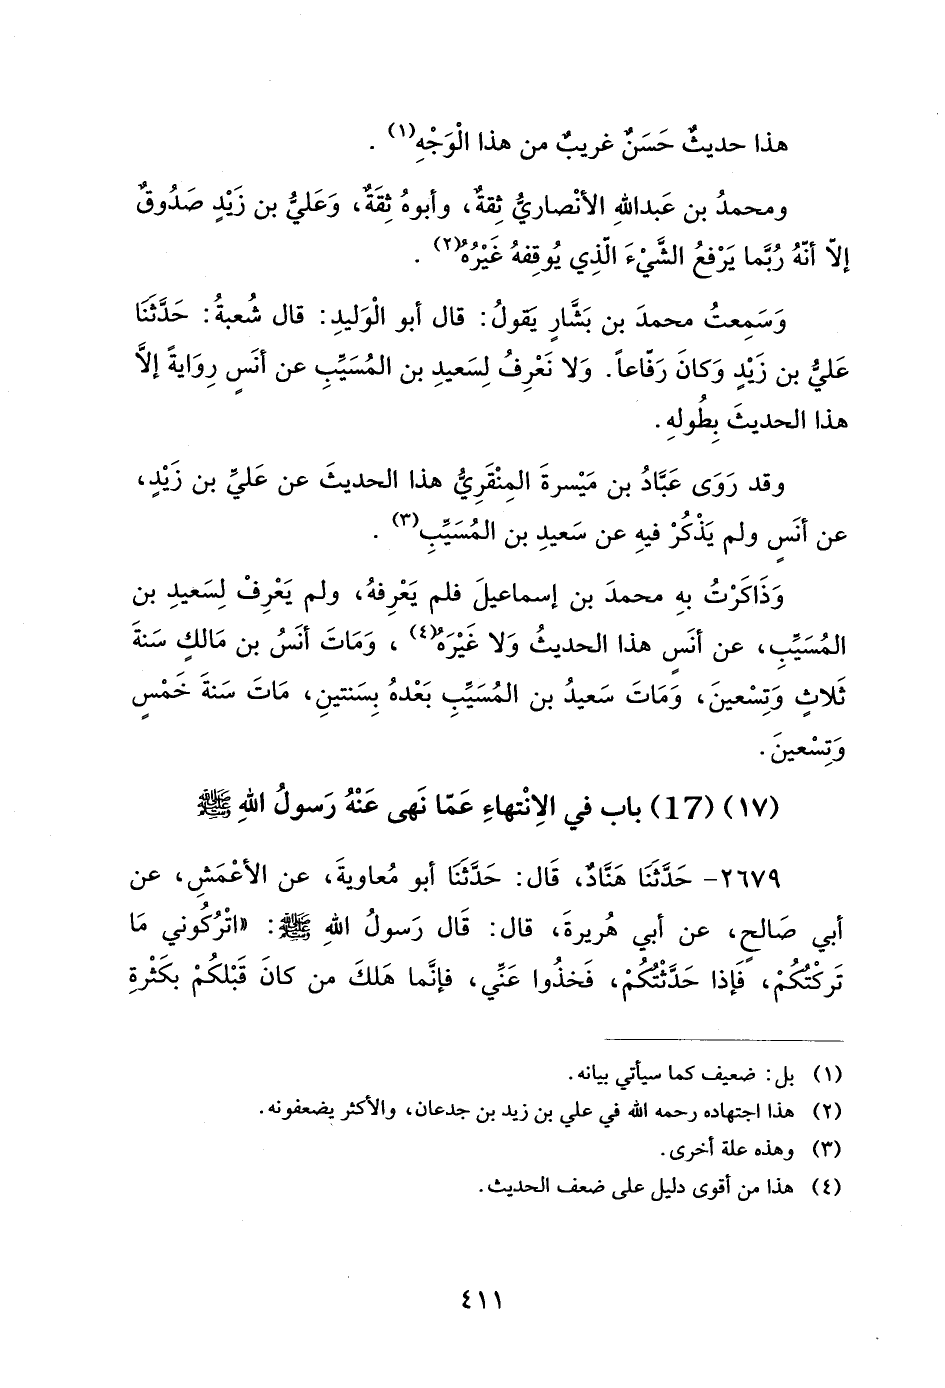 هذا حديثٌ حَسَنٌ غريبٌ من هذا الْوَجْهِ(١) .
ومحمدُ بن عَبدالله الأنْصاريُّ ثِقةٌ، وأبوهُ ثِقَةٌ، وَعَليُّ بن زَيْدٍ صَدُوقٌ
إلاّ أنّهُ رُبَّما يَرْفعُ الشَّيْءَ الّذِي يُوقِفهُ غَيْرُهُ(٢) .
وَسَمِعتُ محمدَ بن بَشَّارٍ يَقولُ: قال أبو الْوَليدِ: قال شُعبةُ: حَدَّثَنَا
عَليُّ بن زَيْدٍ وَكانَ رَفّاعاً. وَلا نَعْرِفُ لِسَعيدِ بن المُسَيِّبِ عن أنَسٍ رِوَايةً إلاَّ
هذا الحديثَ بِطُولهِ.
وقد رَوَى عَبَّادُ بن مَيْسرةَ المِنْقَريُّ هذا الحديثَ عن عَليِّ بن زَيْدٍ،
عن أنَسٍ ولم يَذْكُرْ فيهِ عن سَعيدِ بن المُسَيِّبِ(٣) .
وَذَاكَرْتُ بهِ محمدَ بن إسماعيلَ فلم يَعْرِفهُ، ولم يَعْرِفْ لِسَعيدِ بن
المُسَيِّبِ، عن أنَسٍ هذا الحديثُ وَلا غَيْرَهُ(٤) ، وَمَاتَ أنَسُ بن مَالكٍ سَنةَ
ثَلاثٍ وَتِسْعينَ، وَمَاتَ سَعيدُ بن المُسَيِّبِ بَعْدهُ بِسَنتينِ، مَاتَ سَنةَ خَمْسٍ
وَتِسْعينَ.
(١٧) (17) باب في الاِنْتهاءِ عَمّا نَهى عَنْهُ رَسولُ اللهِ ﷺ
٢٦٧٩- حَدَّثَنَا هَنَّادٌ، قَال: حَدَّثَنَا أبو مُعاويةَ، عن الأعْمَشِ، عن
أبي صَالحٍ، عن أبي هُريرةَ، قال: قَال رَسولُ اللهِ ﷺ: «اتْرُكُوني مَا
تَركْتُكُمْ، فَإذا حَدَّثْتُكُمْ، فَخذُوا عَنِّي، فإنَّما هَلكَ من كانَ قَبْلكُمْ بِكَثْرةِ
(١) بل: ضعيف كما سيأتي بيانه.
(٢) هذا اجتهاده رحمه الله في علي بن زيد بن جدعان، والأكثر يضعفونه.
(٣) وهذه علة أخرى.
(٤) هذا من أقوى دليل على ضعف الحديث.
٤١١